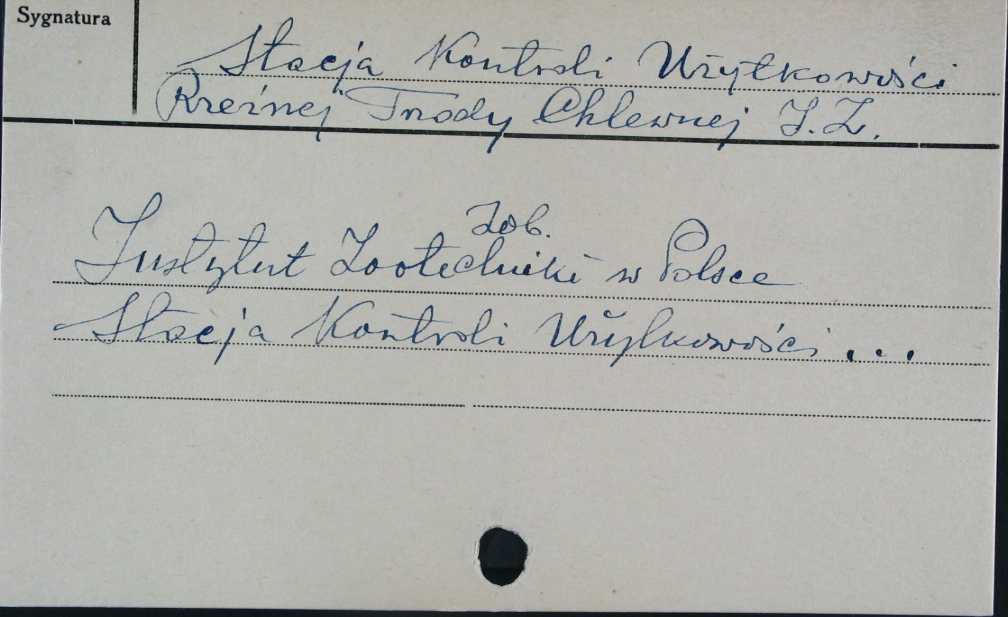 Sygnatura
Stacja Kontroli Użytkowości
Rzeźnej Trzody Chlewnej I.Z.
Zob.
Instytut Zootechniki w Polsce
Stacja Kontroli Użytkowości...